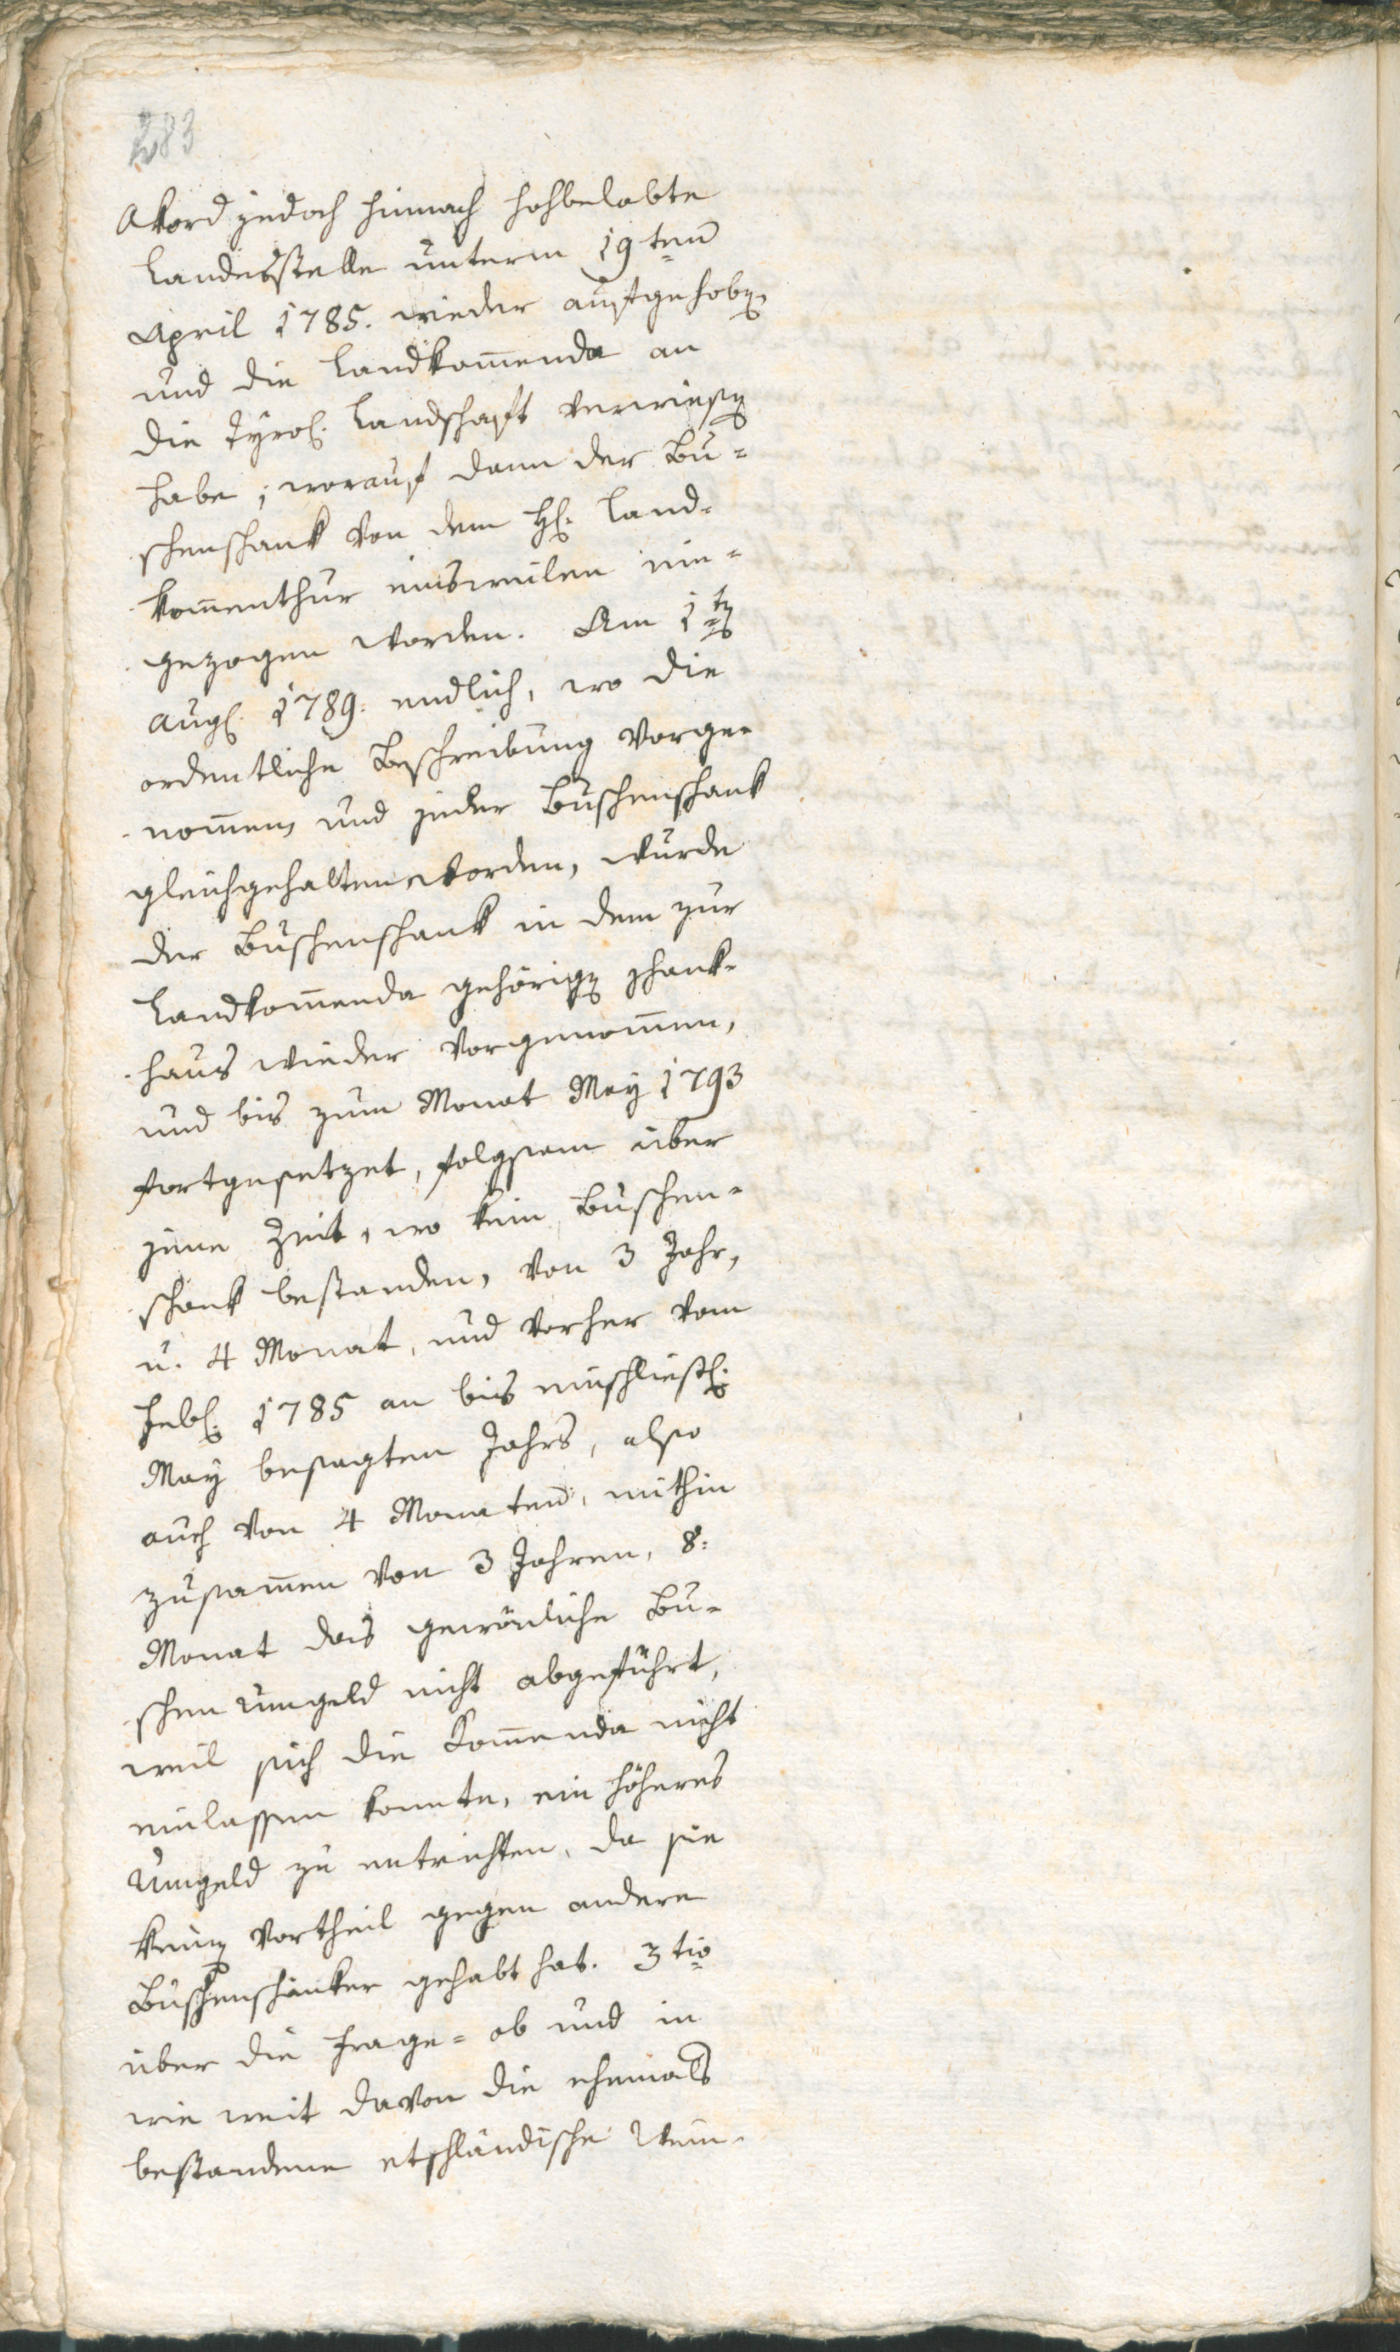 283
Akord jedoch hinnach hochbelobte
Landesstelle unterm 19ten
April 1785. wieder aufgehoben
und die Landkom̅enda an
die Tyrol. Landschaft verwiesen
habe; worauf dann der Bu-
schenschank von dem H. Land-
kom̅enthur einsweilen ein-
gezogen worden. Am 1ten
Aug. 1789. endlich, wo die
ordentliche Beschreibung vorge-
nom̅en, und jeder Buschenschank
gleichgehalten worden, wurde
der Buschenschank in dem zur
Landkom̅enda gehörigen Schank-
haus wieder vorgenom̅en,
und bis zum Monat May 1793
fortgesetzet, folgsam über
jene Zeit, wo kein Buschen-
schank bestanden, von 3 Jahr,
u. 4 Monat, und vorher vom
Febr. 1785 an bis einschließl.
May besagten Jahrs, also
auch von 4 Monaten, mithin
zusam̅en von 3 Jahren, 8:
Monat das gewönliche Bu-
schen Umgeld nicht abgeführt,
weil sich die Kom̅enda nicht
einlassen konnte, ein höheres
Umgeld zu entrichten, da sie
keinen Vortheil gegen andere
Buschenschänker gehabt hat. 3tio
über die Frage = ob und in
wie weit davon die ehemals
bestandene etschländische Wein-